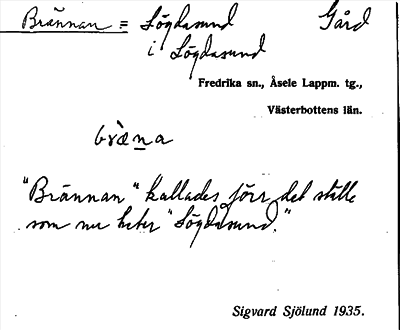 Brännan = Lögdasund Gård
i Lögdasund
Fredrika sn., Åsele Lappm. tg.,
Västerbottens län.
bræ̀na
"Brännan" kallades förr det ställe
som nu heter "Lögdasund."
Sigvard Sjölund 1935.